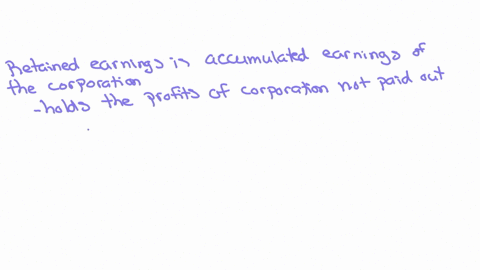 Retained earnings is accumulated earnings of
the corporation
-holds the profits of corporation not paid out